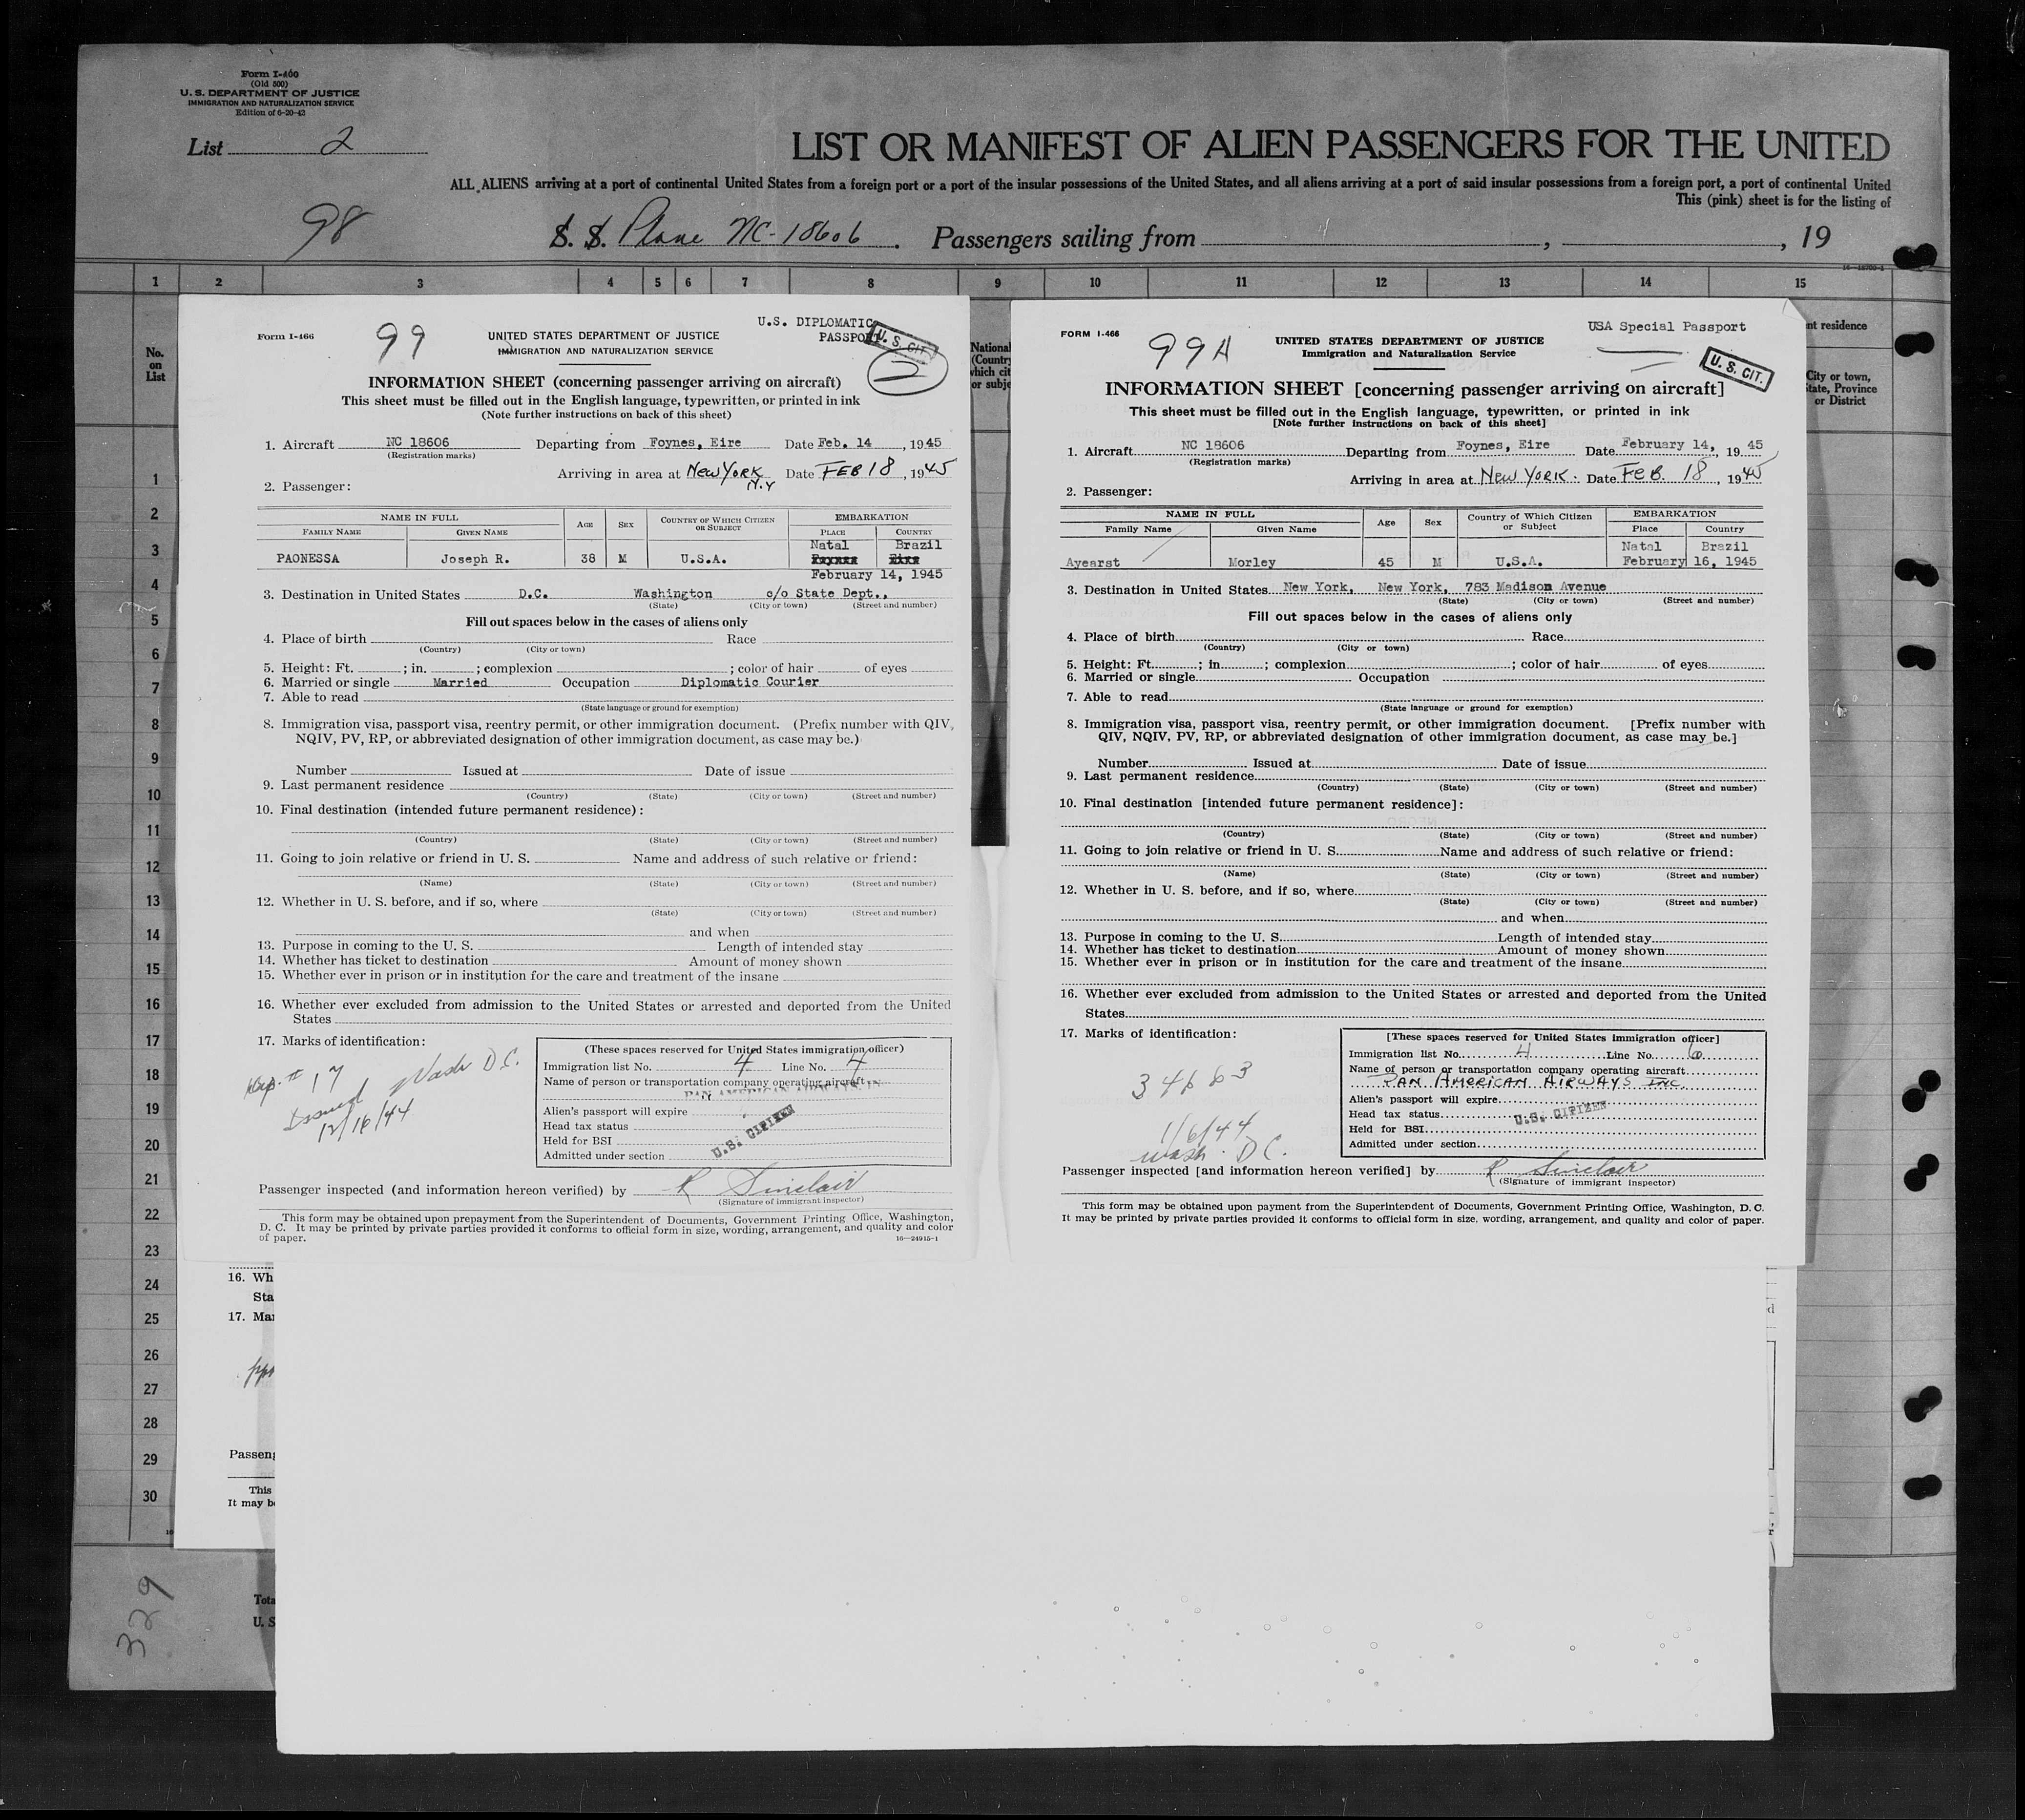 Form I-400
(Old 500)
U. S. DEPARTMENT OF JUSTICE
IMMIGRATION AND NATURALIZATION SERVICE
Edition of 6-20-42
List 2
LIST OR MANIFEST OF ALIEN PASSENGERS FOR THE UNITED
ALL ALIENS arriving at a port of continental United States from a foreign port or a port of the insular possessions of the United States, and all aliens arriving at a port of said insular possessions from a foreign port, a port of continental United
This (pink) sheet is for the listing of
98
S. S. Plane NC-18606. Passengers sailing from , , 19
1 2 3 4 5 6 7 8 9 10 11 12 13 14 15
No.
on
List
National
(Country
which cit
or subje
nt residence
City or town,
State, Province
or District
1
2
3
4
5
6
7
8
9
10
11
12
13
14
15
16
17
18
19
20
21
22
23
24
25
26
27
28
29
30
Form I-466
99
U.S. DIPLOMATIC
PASSPORT
U. S. CIT.
UNITED STATES DEPARTMENT OF JUSTICE
IMMIGRATION AND NATURALIZATION SERVICE
INFORMATION SHEET (concerning passenger arriving on aircraft)
This sheet must be filled out in the English language, typewritten, or printed in ink
(Note further instructions on back of this sheet)
1. Aircraft NC 18606 Departing from Foynes, Eire Date Feb. 14, 1945
(Registration marks)
Arriving in area at New York N.Y Date FEB 18, 1945
2. Passenger:
NAME IN FULL
AGE
SEX
COUNTRY OF WHICH CITIZEN OR SUBJECT
EMBARKATION
FAMILY NAME
GIVEN NAME
PLACE
COUNTRY
Natal Brazil
PAONESSA Joseph R. 38 M U.S.A. Foynes Eire
February 14, 1945
3. Destination in United States D.C. Washington c/o State Dept.,
(State) (City or town) (Street and number)
Fill out spaces below in the cases of aliens only
4. Place of birth Race
(Country) (City or town)
5. Height: Ft. ; in. ; complexion ; color of hair of eyes
6. Married or single Married Occupation Diplomatic Courier
7. Able to read
(State language or ground for exemption)
8. Immigration visa, passport visa, reentry permit, or other immigration document. (Prefix number with QIV,
NQIV, PV, RP, or abbreviated designation of other immigration document, as case may be.)
Number Issued at Date of issue
9. Last permanent residence
(Country) (State) (City or town) (Street and number)
10. Final destination (intended future permanent residence):
(Country) (State) (City or town) (Street and number)
11. Going to join relative or friend in U. S. Name and address of such relative or friend:
(Name) (State) (City or town) (Street and number)
12. Whether in U. S. before, and if so, where
(State) (City or town) (Street and number)
and when
13. Purpose in coming to the U. S. Length of intended stay
14. Whether has ticket to destination Amount of money shown
15. Whether ever in prison or in institution for the care and treatment of the insane
16. Whether ever excluded from admission to the United States or arrested and deported from the United
States
17. Marks of identification:
# 17 Wash D.C.
Issued
12/16/44
(These spaces reserved for United States immigration officer)
Immigration list No. 4 Line No. 4
Name of person or transportation company operating aircraft
PAN AMERICAN AIRWAYS IN
Alien's passport will expire
Head tax status
Held for BSI
Admitted under section
U.S. CITIZEN
Passenger inspected (and information hereon verified) by R Sinclair
(Signature of immigrant inspector)
This form may be obtained upon prepayment from the Superintendent of Documents, Government Printing Office, Washington,
D. C. It may be printed by private parties provided it conforms to official form in size, wording, arrangement, and quality and color
of paper.
16—24915-1
FORM I-466
99A
USA Special Passport
U. S. CIT.
UNITED STATES DEPARTMENT OF JUSTICE
Immigration and Naturalization Service
INFORMATION SHEET [concerning passenger arriving on aircraft]
This sheet must be filled out in the English language, typewritten, or printed in ink
[Note further instructions on back of this sheet]
1. Aircraft NC 18606 Departing from Foynes, Eire Date February 14, 1945
(Registration marks)
Arriving in area at New York. Date FEB. 18, 1945
2. Passenger:
NAME IN FULL
Age
Sex
Country of Which Citizen or Subject
EMBARKATION
Family Name
Given Name
Place
Country
Natal Brazil
Ayearst Morley 45 M U.S.A. February 16, 1945
3. Destination in United States New York, New York, 783 Madison Avenue
(State) (City or town) (Street and number)
Fill out spaces below in the cases of aliens only
4. Place of birth Race
(Country) (City or town)
5. Height: Ft. ; in ; complexion ; color of hair of eyes
6. Married or single Occupation
7. Able to read
(State language or ground for exemption)
8. Immigration visa, passport visa, reentry permit, or other immigration document. [Prefix number with
QIV, NQIV, PV, RP, or abbreviated designation of other immigration document, as case may be.]
Number Issued at Date of issue
9. Last permanent residence
(Country) (State) (City or town) (Street and number)
10. Final destination [intended future permanent residence]:
(Country) (State) (City or town) (Street and number)
11. Going to join relative or friend in U. S. Name and address of such relative or friend:
(Name) (State) (City or town) (Street and number)
12. Whether in U. S. before, and if so, where
(State) (City or town) (Street and number)
and when
13. Purpose in coming to the U. S. Length of intended stay
14. Whether has ticket to destination Amount of money shown
15. Whether ever in prison or in institution for the care and treatment of the insane
16. Whether ever excluded from admission to the United States or arrested and deported from the United
States
17. Marks of identification:
34663
1/6/44
Wash. D C.
[These spaces reserved for United States immigration officer]
Immigration list No. 4 Line No. 6
Name of person or transportation company operating aircraft
PAN AMERICAN AIRWAYS INC.
Alien's passport will expire
Head tax status
U.S. CITIZEN
Held for BSI
Admitted under section
Passenger inspected [and information hereon verified] by R Sinclair
(Signature of immigrant inspector)
This form may be obtained upon payment from the Superintendent of Documents, Government Printing Office, Washington, D. C.
It may be printed by private parties provided it conforms to official form in size, wording, arrangement, and quality and color of paper.
16. Wh
Sta
17. Mar
Passeng
This
It may b
Tota
U. S
329